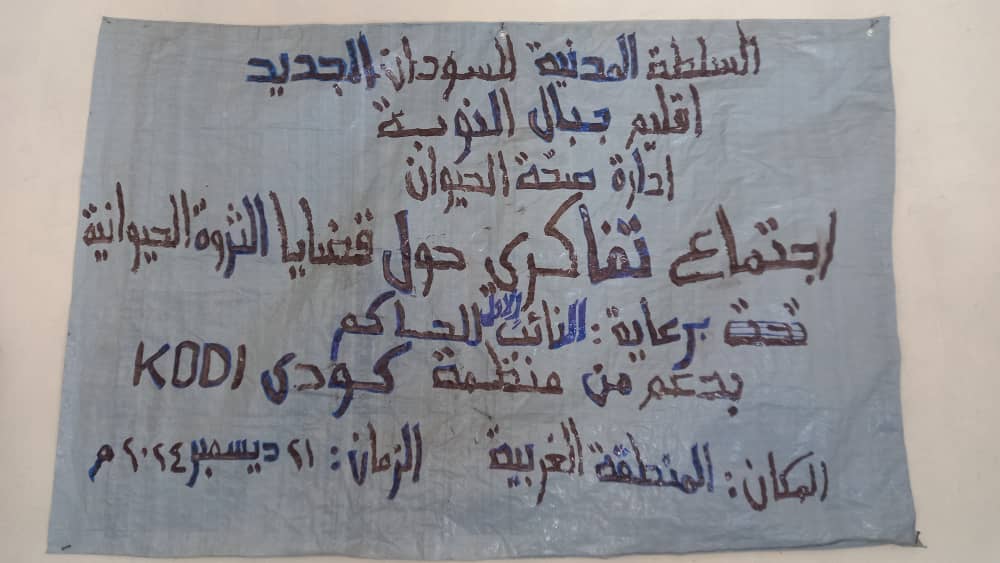 السلطة المدنية للسودان الجديد
اقليم جبال النوبة
ادارة صحة الحيوان
اجتماع تفاكرى حول قضايا الثروة الحيوانية
برعاية: النائب الاول الحاكم
بدعم من منظمة كودى KODI
المكان: المنطقة الغربية الزمان: ٢١ ديسمبر ٢٠٢٤ م